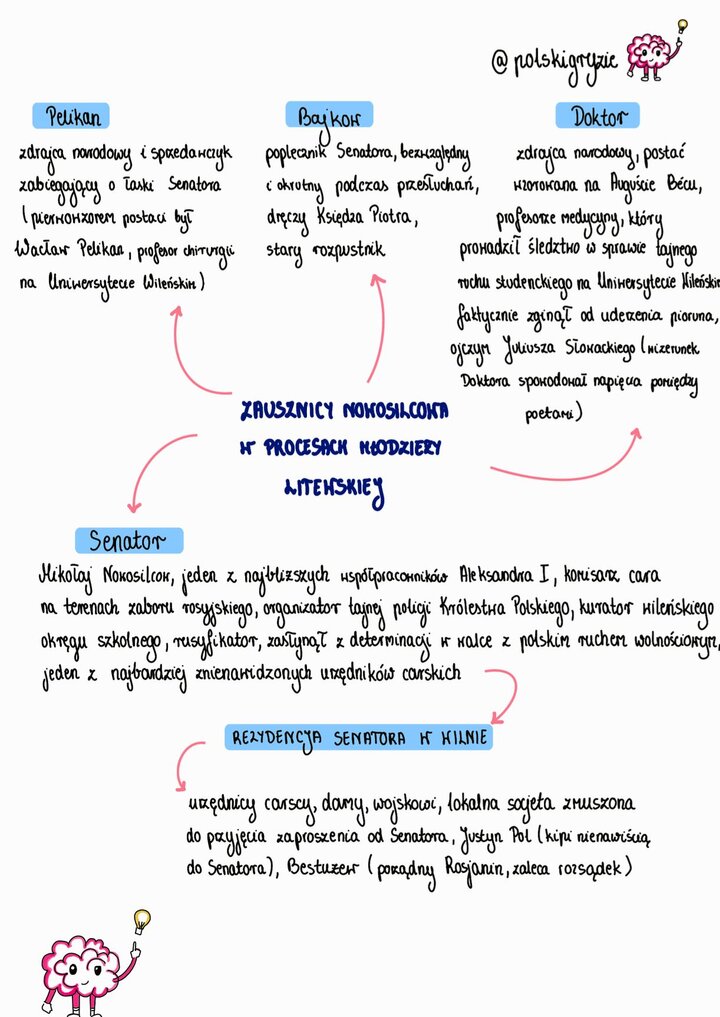 @polskigryzie
Pelikan
zdrajca narodowy i sprzedawczyk
zabiegający o łaski Senatora
(pierwowzorem postaci był
Wacław Pelikan, profesor chirurgii
na Uniwersytecie Wileńskim)
Bajkow
poplecznik Senatora, bezwzględny
i okrutny podczas przesłuchań,
dręczy Księdza Piotra,
stary rozpustnik
Doktor
zdrajca narodowy, postać
wzorowana na Auguście Bécu,
profesorze medycyny, który
prowadził śledztwo w sprawie tajnego
ruchu studenckiego na Uniwersytecie Wileńskim
faktycznie zginął od uderzenia pioruna,
ojczym Juliusza Słowackiego (wizerunek
Doktora spowodował napięcia pomiędzy
poetami)
ZAUSZNICY NOWOSILCOWA
W PROCESACH MŁODZIEŻY
LITEWSKIEJ
Senator
Mikołaj Nowosilcow, jeden z najbliższych współpracowników Aleksandra I, komisarz cara
na terenach zaboru rosyjskiego, organizator tajnej policji Królestwa Polskiego, kurator wileńskiego
okręgu szkolnego, rusyfikator, zasłynął z determinacji w walce z polskim ruchem wolnościowym,
jeden z najbardziej znienawidzonych urzędników carskich
REZYDENCJA SENATORA W WILNIE
urzędnicy carscy, damy, wojskowi, lokalna socjeta zmuszona
do przyjęcia zaproszenia od Senatora, Justyn Pol (kipi nienawiścią
do Senatora), Bestużew (porządny Rosjanin, zaleca rozsądek)